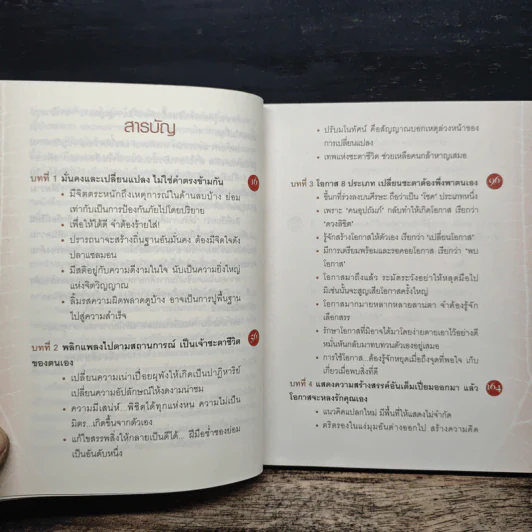 สารบัญ
บทที่ 1 มั่นคงและเปลี่ยนแปลง ไม่ใช่คำตรงข้ามกัน 16
• มีจิตตระหนักถึงเหตุการณ์ในด้านลบบ้าง ย่อม
เท่ากับเป็นการป้องกันภัยไปโดยปริยาย
• เพื่อให้ได้ดี จำต้องร้ายใส่!
• ปรารถนาจะสร้างถิ่นฐานอันมั่นคง ต้องมีจิตใจดัง
ปลาแซลมอน
• มีสติอยู่กับความดีงามในใจ นับเป็นความยิ่งใหญ่
แห่งจิตวิญญาณ
• ลิ้มรสความผิดพลาดดูบ้าง อาจเป็นการปูพื้นฐาน
ไปสู่ความสำเร็จ
บทที่ 2 พลิกแพลงไปตามสถานการณ์ เป็นเจ้าชะตาชีวิต 56
ของตนเอง
• เปลี่ยนความเน่าเปื่อยผุพังให้เกิดเป็นปาฏิหาริย์
เปลี่ยนความอัปลักษณ์ให้งดงามน่าชม
• ความมีเสน่ห์... พิชิตได้ทุกแห่งหน ความไม่เป็น
มิตร...เกิดขึ้นจากตัวเอง
• แก้ไขสรรพสิ่งให้กลายเป็นดีได้... ฝีมือช่ำชองย่อม
เป็นอันดับหนึ่ง
• ปรับมโนทัศน์ คือสัญญาณบอกเหตุล่วงหน้าของ
การเปลี่ยนแปลง
• เทพแห่งชะตาชีวิต ช่วยเหลือคนกล้าหาญเสมอ
บทที่ 3 โอกาส 8 ประเภท เปลี่ยนชะตาต้องพึ่งพาตนเอง 96
• ขี้นกที่ร่วงลงบนศีรษะ ถือว่าเป็น 'โชค' ประเภทหนึ่ง
• เพราะ 'คนอุปถัมภ์' กลับทำให้เกิดโอกาส เรียกว่า
'ดวงลิขิต'
• รู้จักสร้างโอกาสให้ตัวเอง เรียกว่า 'เปลี่ยนโอกาส'
• มีการเตรียมพร้อมและรอคอยโอกาส เรียกว่า 'พบ
โอกาส'
• โอกาสมาถึงแล้ว ระมัดระวังอย่าให้หลุดมือไป
มิเช่นนั้นจะสูญเสียโอกาสครั้งใหญ่
• โอกาสมากมายหลากหลายลานตา จำต้องรู้จัก
เลือกสรร
• รักษาโอกาสที่มิอาจได้มาโดยง่ายดายเอาไว้อย่างดี
หมั่นหันกลับมาทบทวนตัวเองอยู่เสมอ
• การใช้โอกาส...ต้องรู้จักหยุดเมื่อถึงจุดที่พอใจ เก็บ
เกี่ยวเมื่อพบสิ่งที่ดี
บทที่ 4 แสดงความสร้างสรรค์อันเต็มเปี่ยมออกมา แล้ว 164
โอกาสจะหลงรักคุณเอง
• แนวคิดแปลกใหม่ มีพื้นที่ให้แสดงไม่จำกัด
• ตริตรองในแง่มุมอันต่างออกไป สร้างความคิด